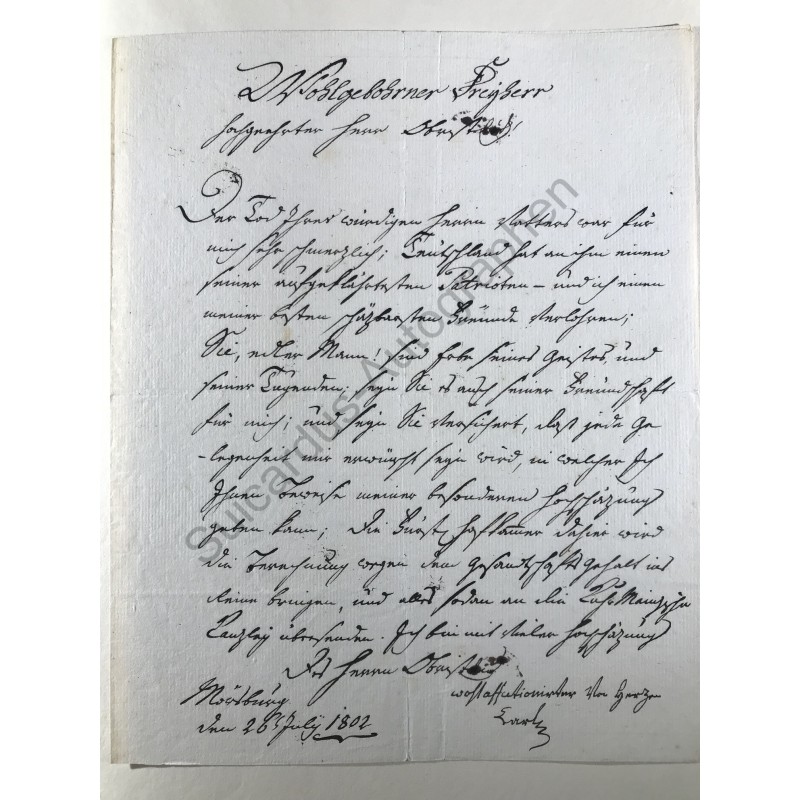 Wohlgebohrner Freyherr
hochgeehrter Herr Obrist!
Der Tod Ihres würdigen Herrn Vatters war für
mich sehr schmerzlich; Teütschland hat an ihm einen
seiner aufgeklährtesten Patrioten – und ich einen
meiner besten schäzbarsten Freünde verlohren;
Sie, edler Mann! sind Erbe seines Geistes, und
seiner Tugenden; seyn Sie es auch seiner Freündschaft
für mich; und seyn Sie versichert, daß jede Ge
-legenheit mir erwünscht seyn wird, in welcher Ich
Ihnen Beweise meiner besonderen Hochschäzung
geben kann; Die Fürstl. Hofkammer dahier wird
die Berechnung wegen dem Gesandtschafts Gehalt ins
Reine bringen, und alles sodan an die Kuhr Mainzische
Kanzley übersenden. Ich bin mit vieler Hochschäzung
Des Herrn Obrist
Mörsburg
den 26t July 1802
wohlaffectionirter von Herzen
Carl
Suicardus-Autographen